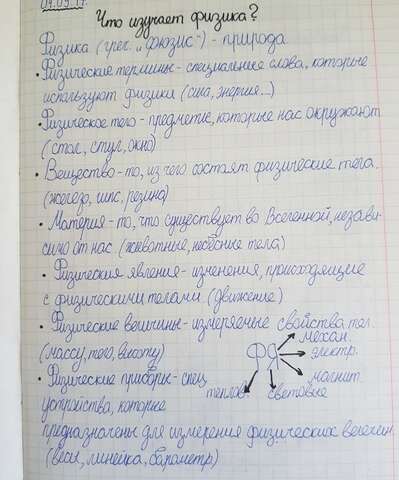 04.09.17.
Что изучает физика?
Физика (грег. „фюзис“) - природа
• Физические термины - специальные слова, которые
используют физики (сила, энергия...)
• Физическое тело - предметы, которые нас окружают
(стол, стул, окно)
• Вещество - то, из чего состоят физические тела.
(железо, гипс, резина)
• Материя - то, что существует во Вселенной, незави-
симо от нас. (животные, небесные тела)
• Физические явления - изменения, происходящие
с физическими телами. (движение)
• Физические величины - измеряемые свойства тел.
(массу, тело, высоту)
ФЯ
механ.
электр.
магнит.
световые
теплов.
• Физические приборы - спец.
устройства, которые
предназначены для измерения физических величин
(весы, линейка, барометр)